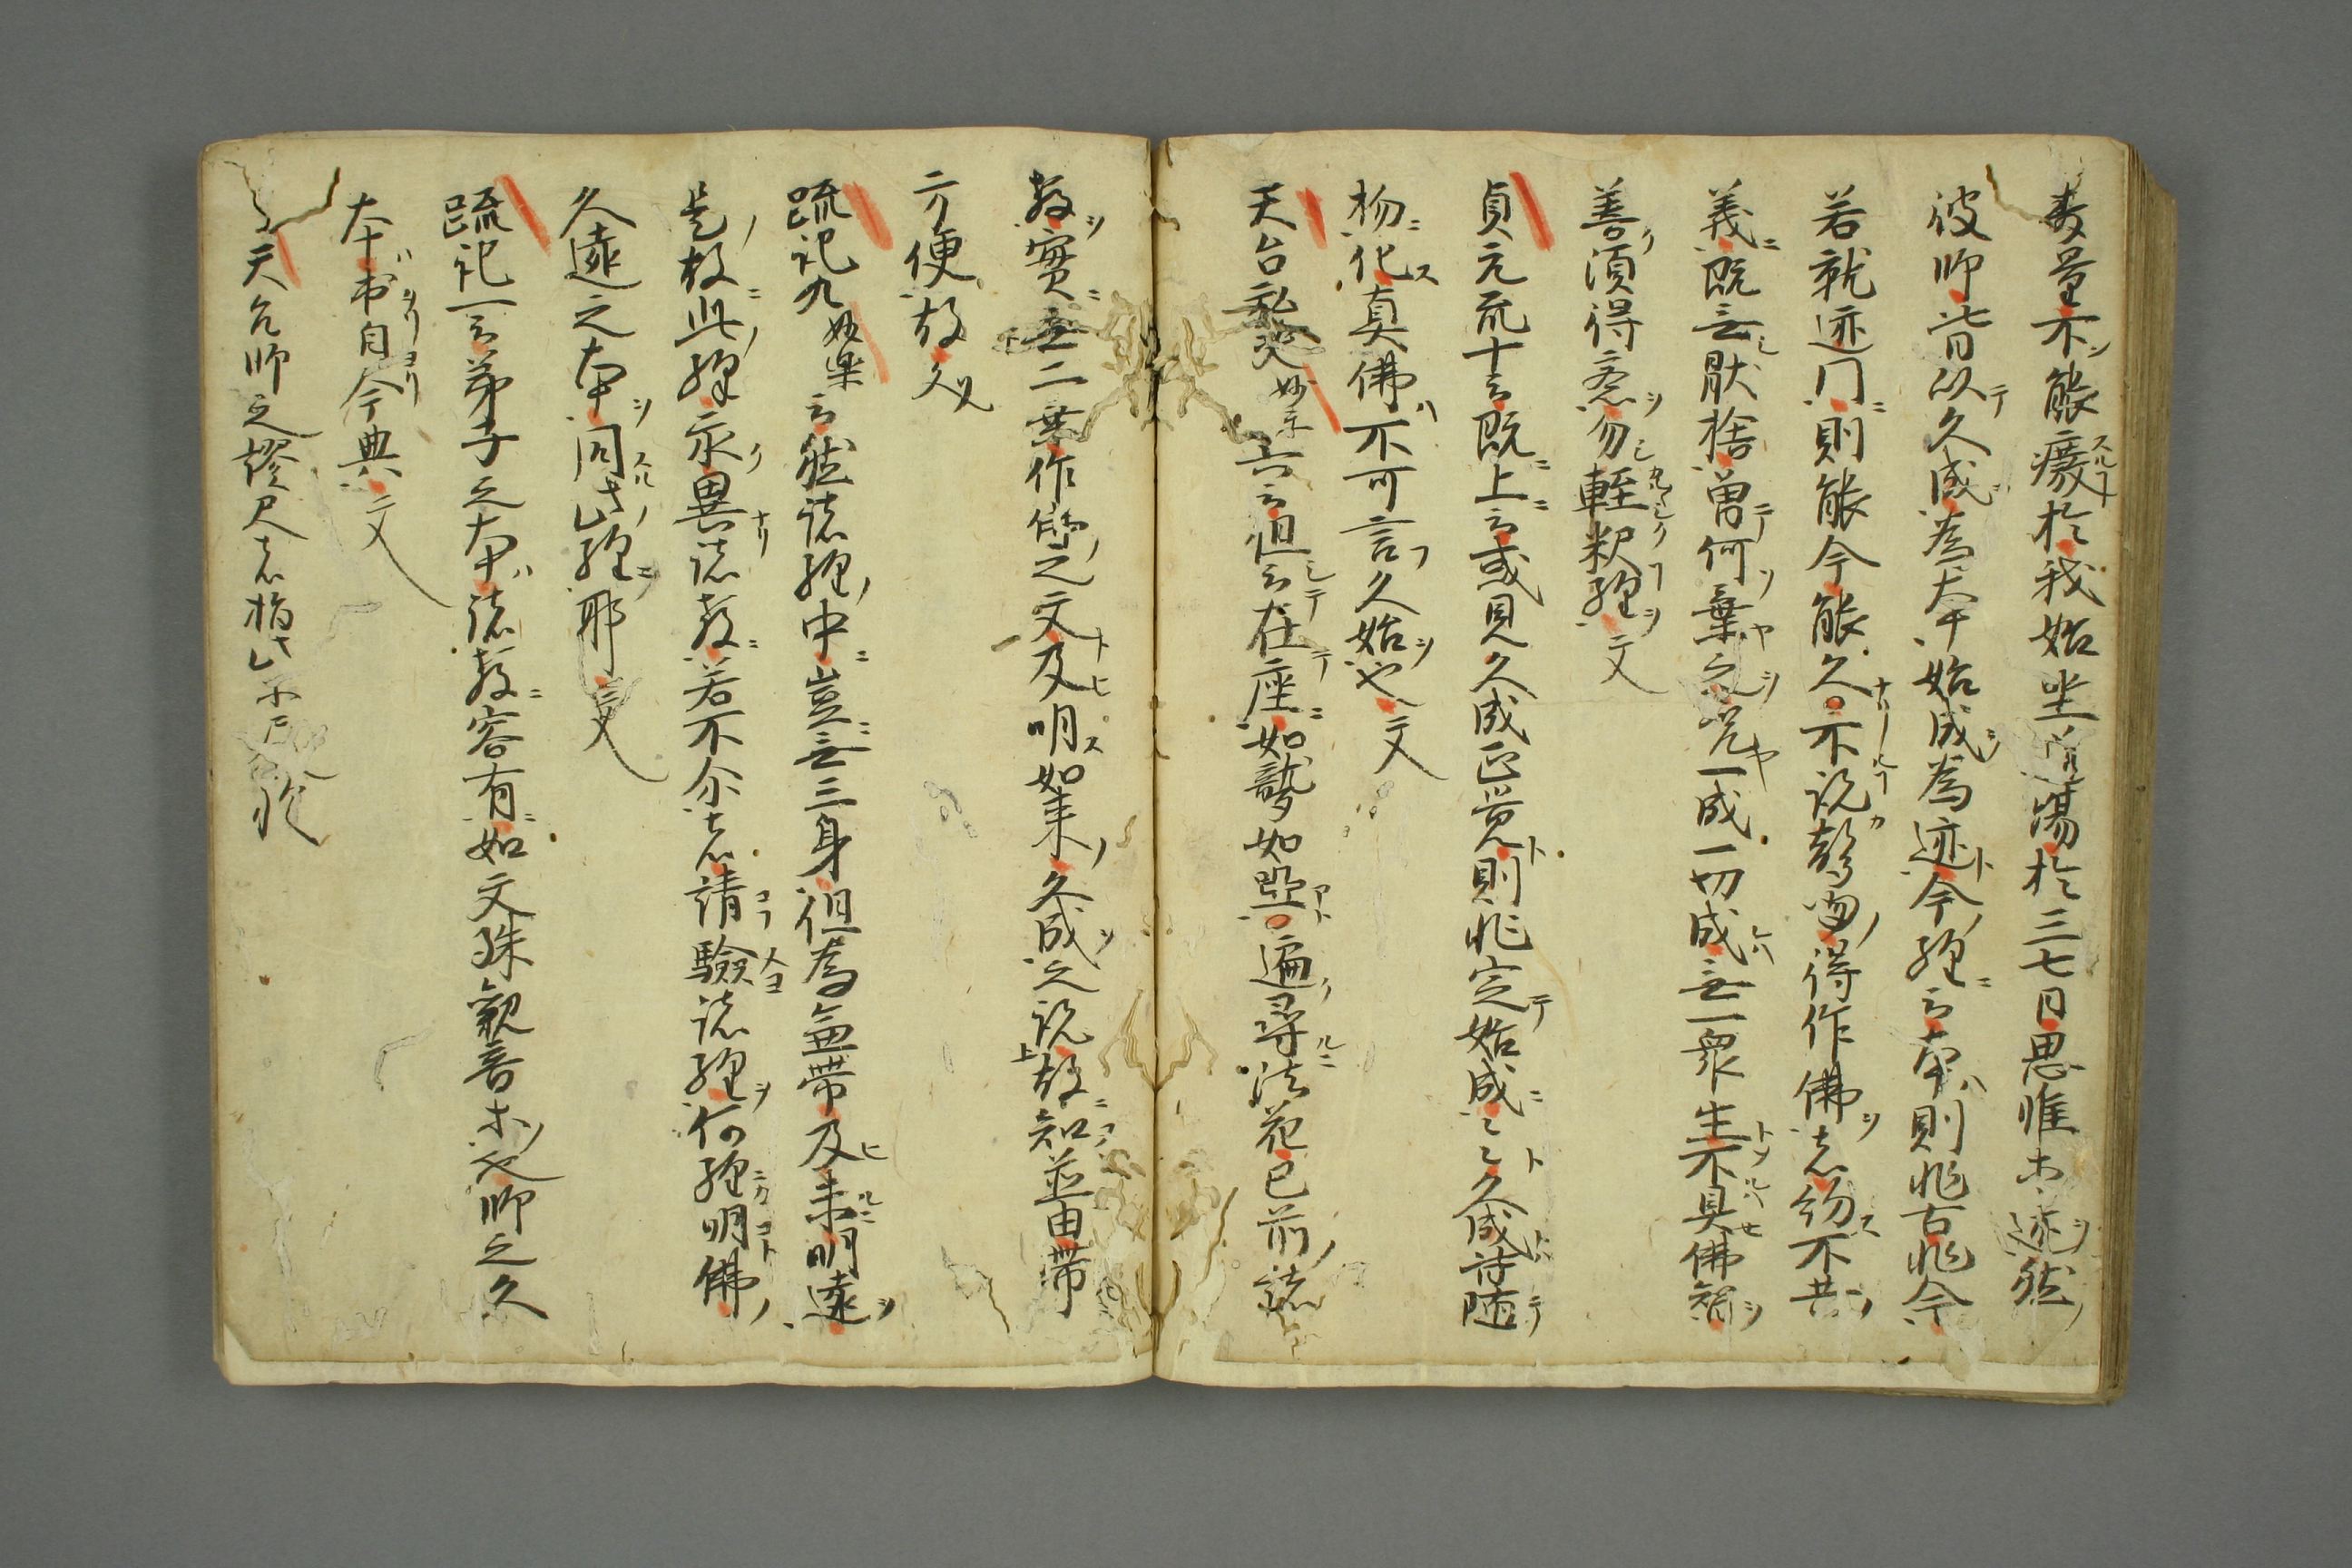 壽量不能癈於我始坐道場於三七日思惟木迹然
彼師皆以久成為本始成為迹今經云本則非古非今
若就迹门則能今能久不説得作佛者紛不
義既无猒捨曽何棄之况一成一切成无一衆生不具佛智
善須得意勿輕釈經文
貞元疏十云既上云或見久成正覚則非定始成々々久成詩随
物化真佛不可言久始也文
天台妙六云但云在座如聾如啞遍尋法花已前諸
教實无二无作之文及明如来久成之説故知並由帯
方便故文
䟽記九妙楽云然諸經中豈无三身但為兼帯及未明遠
是故此經永異諸教若不尓者請驗諸經何經明佛
久遠之本同此經耶文
䟽記一云弟子之本諸教容有如文殊観音木也師之久
本本自今典文
天台師之尺者指此